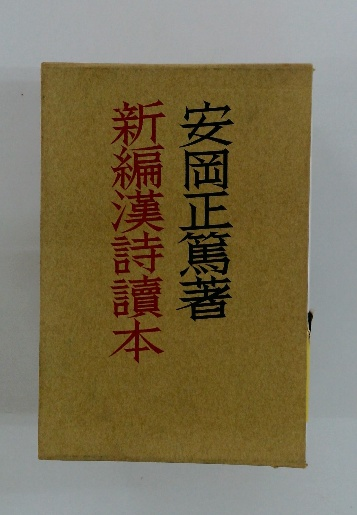 安岡正篤著
新編漢詩讀本